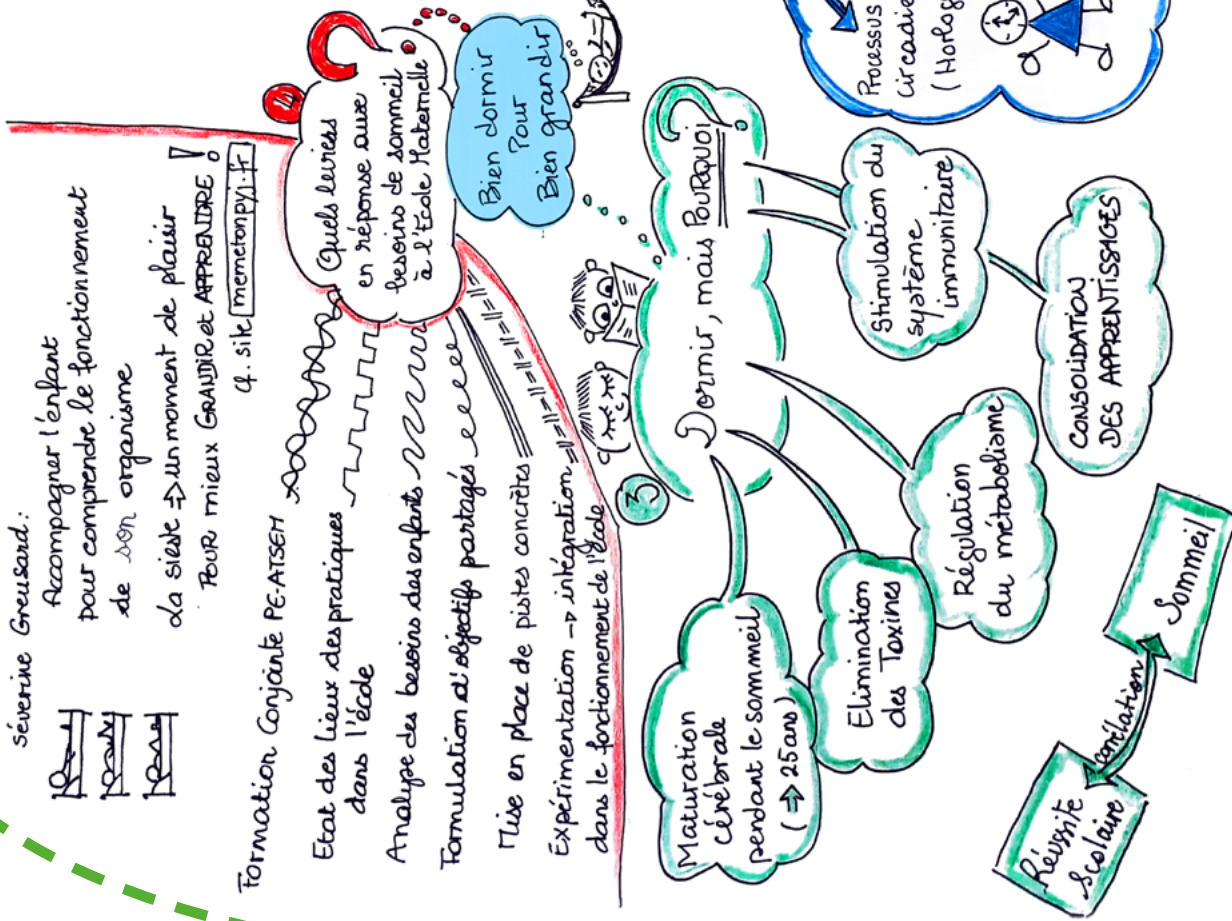 séverine Greusard:
Accompagner l'enfant
pour comprendre le fonctionnement
de son organisme
La sieste => un moment de plaisir
POUR mieux GRANDIR et APPRENDRE !
cf. site memetonpyj.fr
4
Quels leviers
en réponse aux
besoins de sommeil
à l'Ecole Maternelle
?
Formation Conjointe PE-ATSEM
Etat des lieux des pratiques
dans l'école
Analyse des besoins des enfants
Formulation d'objectifs partagés
Mise en place de pistes concrètes
Expérimentation -> intégration
dans le fonctionnement de l'école
Bien dormir
Pour
Bien grandir
3
Dormir, mais POURQUOI ?
Maturation
cérébrale
pendant le sommeil
(=> 25 ans)
Elimination
des Toxines
Régulation
du métabolisme
Stimulation du
système
immunitaire
CONSOLIDATION
DES APPRENTISSAGES
Réussite
Scolaire
corrélation
Sommeil
Processus
circadien
(Horlog